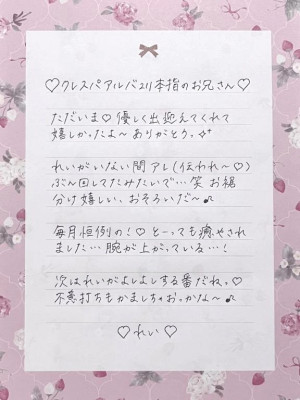 ♡クレスパアルバ211本指のお兄さん♡
ただいま♡優しく出迎えてくれて
嬉しかったよ〜ありがとう。✧⁺
れいがいない間アレ(伝われ〜♡)
ぶん回してたみたいで…笑 お裾
分け嬉しい、おそろいだ〜♪
毎月恒例の！♡と〜っても癒やされ
ました…腕が上がっている…！
次はれいがよしよしする番だねっ♡
不意打ちもかましちゃおっかな〜♪
♡れい♡